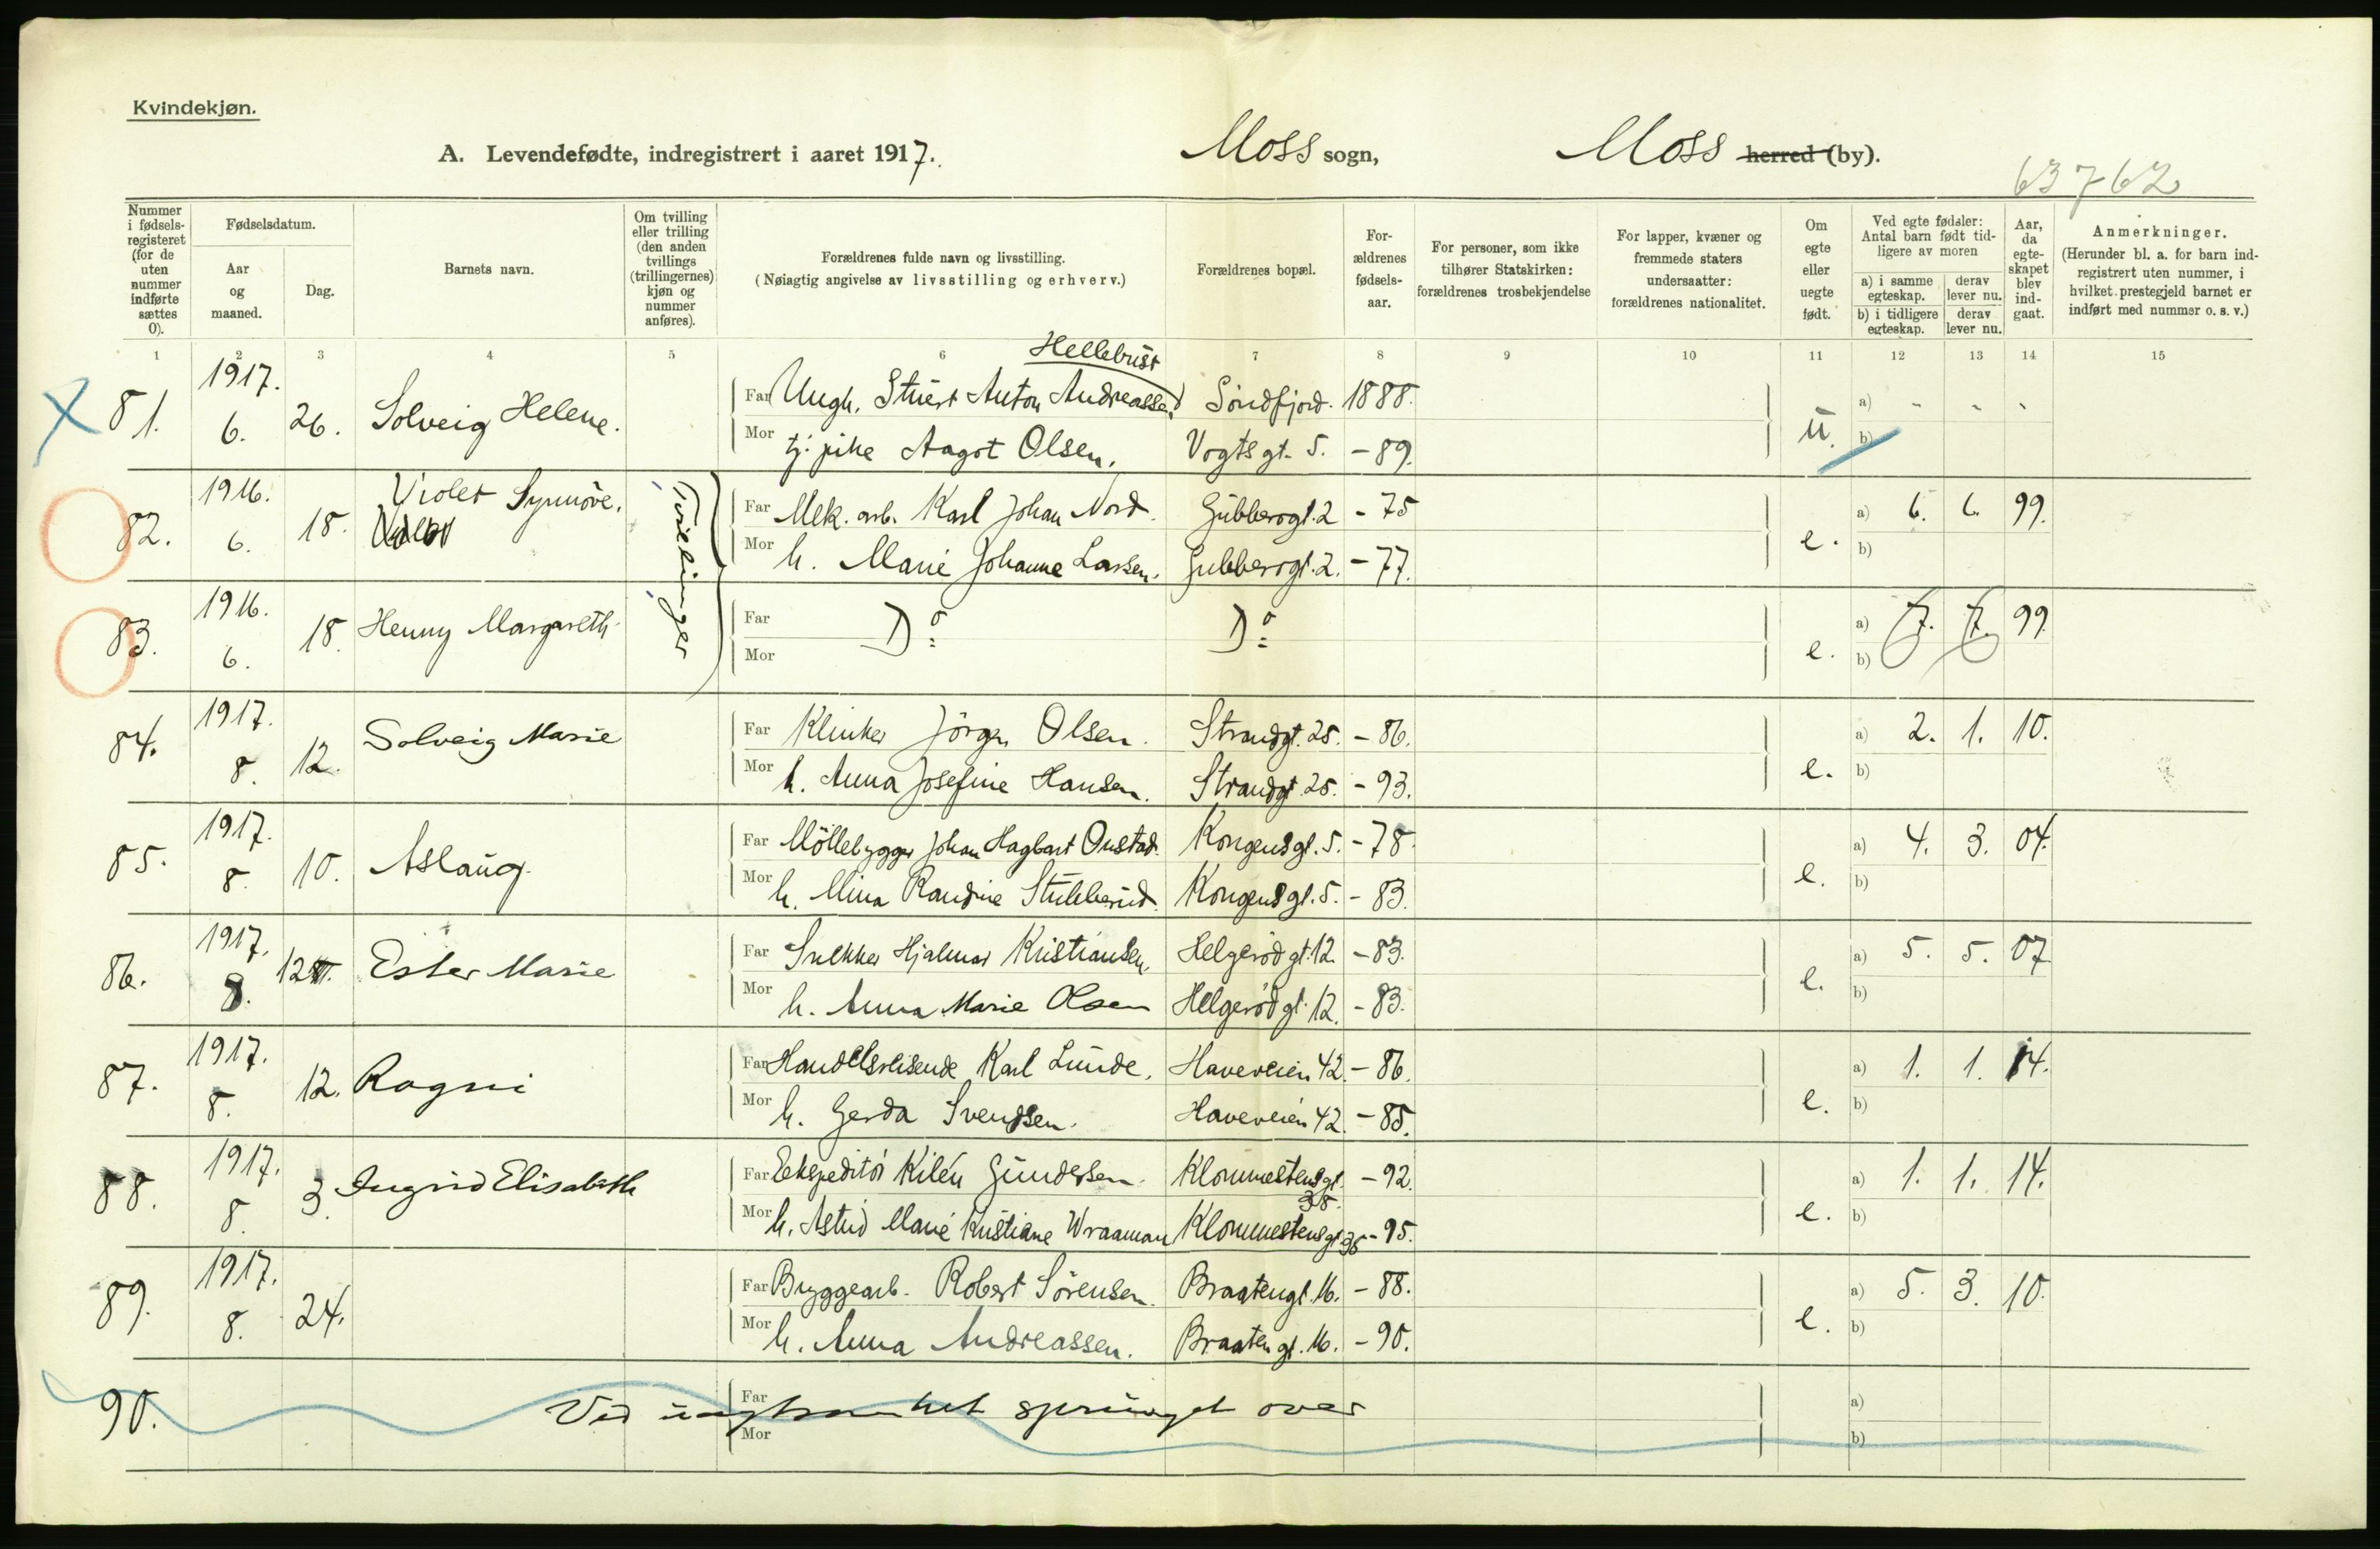 Kvindekjøn.
A. Levendefødte, indregistrert i aaret 1917. Moss sogn, Moss herred (by).
63762
Nummer i fødsels-registeret (for de uten nummer indførte sættes 0).
Fødselsdatum.
Aar og maaned.
Dag.
Barnets navn.
Om tvilling eller trilling (den anden tvillings (trillingernes) kjøn og nummer anføres).
Forældrenes fulde navn og livsstilling.
(Nøiagtig angivelse av livsstilling og erhverv.)
Forældrenes bopæl.
For-ældrenes fødsels-aar.
For personer, som ikke tilhører Statskirken: forældrenes trosbekjendelse
For lapper, kvæner og fremmede staters undersaatter: forældrenes nationalitet.
Om egte eller uegte født.
Ved egte fødsler: Antal barn født tid-ligere av moren
a) i samme egteskap. derav lever nu.
b) i tidligere egteskap. derav lever nu.
Aar, da egte-skapet blev ind-gaat.
Anmerkninger.
(Herunder bl. a. for barn ind-registrert uten nummer, i hvilket prestegjeld barnet er indført med nummer o. s. v.)
1 2 3 4 5 6 7 8 9 10 11 12 13 14 15
Hellebust
81. 1917. 6. 26. Solveig Helene. Far Ungk. Stuert Anton Andreassen Söndfjord. 1888. u. a) - - -
Mor tj. pike Aagot Olsen. Vogts gt. 5. - 89. b)
82. 1916. 6. 18. Violet Synnöve. Tvillinger Far Mek. arb. Karl Johan Nord. Gubberogt. 2 - 75 e. a) 6. 6. 99.
Mor h. Marie Johanne Larsen. Gubberogt. 2. - 77. b)
83. 1916. 6. 18. Henny Margareth Far Do Do e. a) 7. 7. 99.
Mor b)
84. 1917. 8. 12. Solveig Marie Far Klinker Jörgen Olsen. Strandgt. 25. - 86. e. a) 2. 1. 10.
Mor h. Anna Josefine Hansen. Strandgt. 25. - 93. b)
85. 1917. 8. 10. Aslaug. Far Möllebygger Johan Hagbart Onstad. Kongensgt. 5. - 78. e. a) 4. 3. 04.
Mor h. Mina Randine Stubberud. Kongensgt. 5. - 83. b)
86. 1917. 8. 12. Ester Marie Far Snekker Hjalmar Kristiansen. Helgerödgt. 12. - 83. e. a) 5. 5. 07
Mor h. Anna Marie Olsen Helgerödgt. 12. - 83. b)
87. 1917. 8. 12. Ragni Far Handelsreisende Karl Lunde. Haveveien 42. - 86. e. a) 1. 1. 14.
Mor h. Gerda Svendsen. Haveveien 42. - 85. b)
88. 1917. 8. 3. Ingrid Elisabeth Far Eekspeditör Kilén Gundersen. Klommestensgt. 35. - 92. e. a) 1. 1. 14.
Mor h. Astrid Marie Kristiane Wraaman Klommestensgt 35 - 95. b)
89. 1917. 8. 24. Far Bryggearb. Robert Sörensen. Braatengt. 16. - 88. e. a) 5. 3. 10.
Mor h. Anna Andreassen. Braatengt. 16. - 90. b)
90. Ved uagtsomhet sprunget over
Far a)
Mor b)